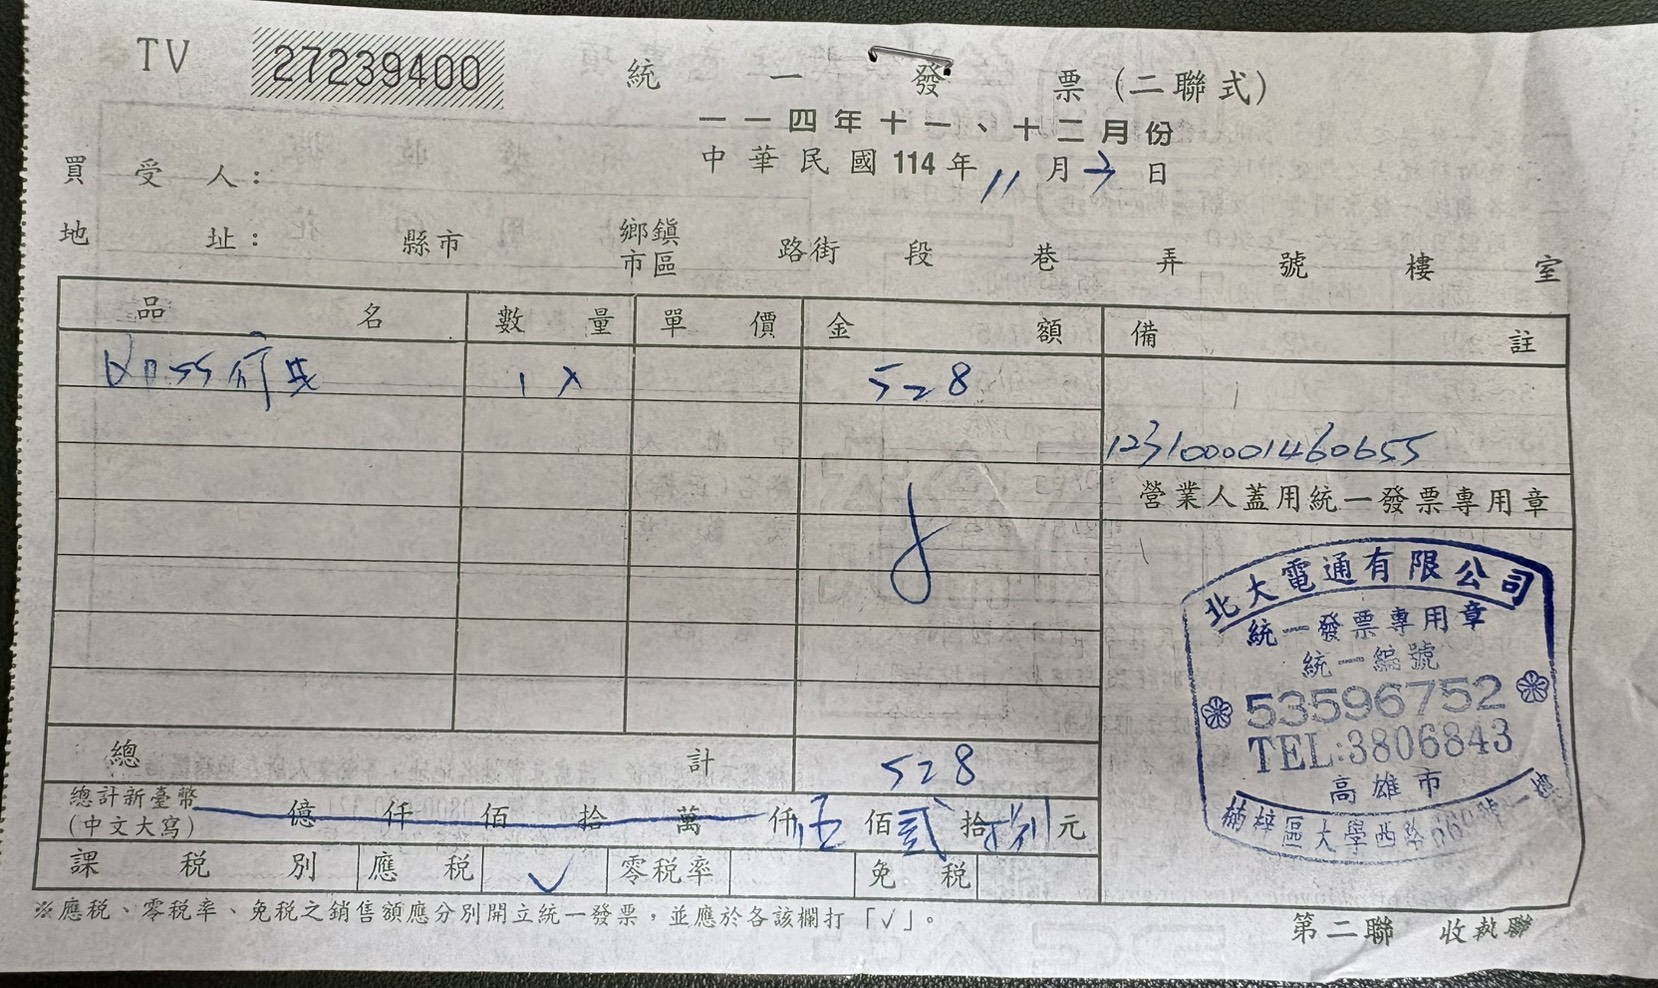 TV 27239400 統一發票(二聯式)
一一四年十一、十二月份
中華民國114年11月3日
買受人:
地址: 縣市 鄉鎮市區 路街 段 巷 弄 號 樓 室
品名 數量 單價 金額 備註
1 528
123100001460655
營業人蓋用統一發票專用章
北大電通有限公司
統一發票專用章
統一編號
53596752
TEL:3806843
高雄市
楠梓區大學西路 號一樓
總計 528
總計新臺幣(中文大寫) 億仟佰拾萬仟伍佰貳拾捌元
課稅別 應稅 ✓ 零稅率 免稅
※應稅、零稅率、免稅之銷售額應分別開立統一發票,並應於各該欄打「✓」。
第二聯 收執聯